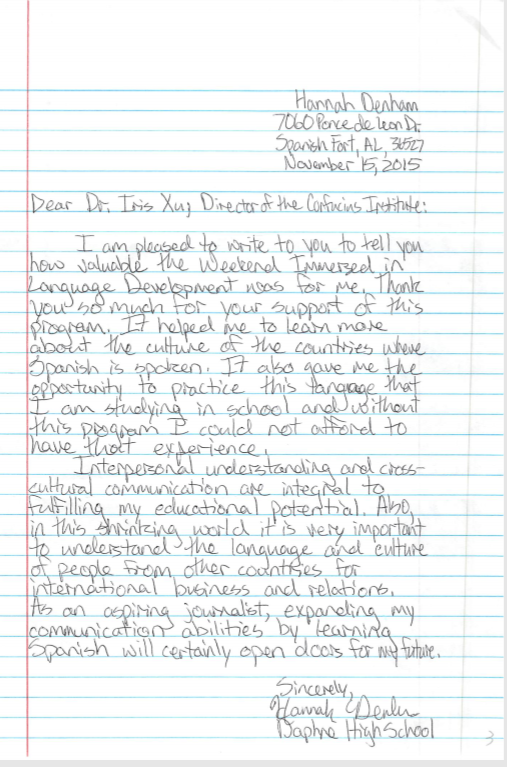 Hannah Denham
7060 Ponce de Leon Dr.
Spanish Fort, AL, 36527
November 15, 2015
Dear Dr. Iris Xu, Director of the Confucius Institute:
I am pleased to write to you to tell you
how valuable the Weekend Immersed in
Language Development was for me. Thank
you so much for your support of this
program. It helped me to learn more
about the culture of the countries where
Spanish is spoken. It also gave me the
opportunity to practice this language that
I am studying in school and without
this program I could not afford to
have that experience.
Interpersonal understanding and cross-
cultural communication are integral to
fulfilling my educational potential. Also,
in this shrinking world it is very important
to understand the language and culture
of people from other countries for
international business and relations.
As an aspiring journalist, expanding my
communication abilities by learning
Spanish will certainly open doors for my future.
Sincerely,
Hannah Denham
Daphne High School
3